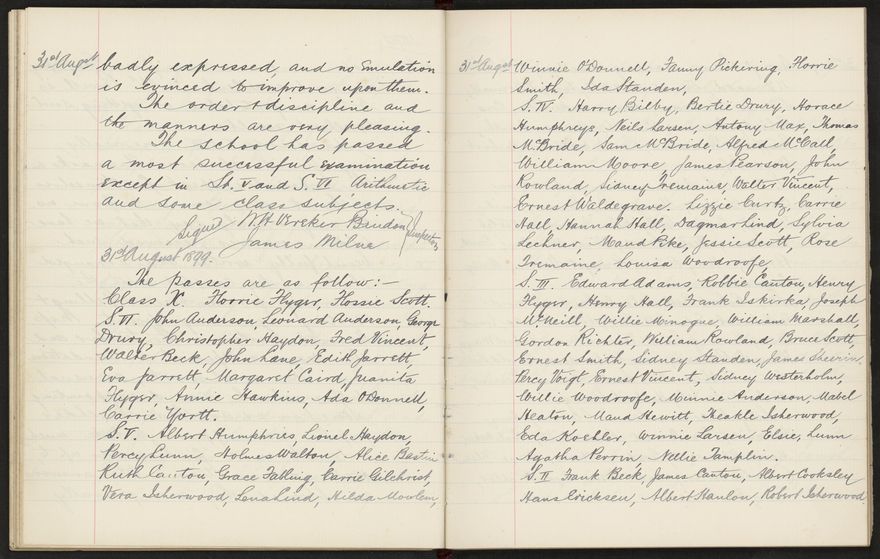 31st Augst badly expressed, and no emulation
is evinced to improve upon them.
The order & discipline and
the manners are very pleasing.
The school has passed
a most successful examination
except in St. V and S. VI Arithmetic
and some class subjects.
Signed W. H. Vereker Bindon } Inspectors
James Milne
31st August 1899.
The passes are as follow:-
Class X. Florrie Flyger, Flossie Scott.
S. VI. John Anderson, Leonard Anderson, George
Drury, Christopher Haydon, Fred Vincent,
Walter Beck, John Lane, Edith Jarrett
Eva Jarrett, Margaret Caird, Juanita
Flyger, Annie Hawkins, Ada O'Donnell,
Carrie Yortt.
S. V. Albert Humphries, Lionel Haydon,
Percy Lunn, Holmes Walton, Alice Bastin
Ruth Canton, Grace Fatling, Carrie Gilchrist,
Vera Isherwood, Lena Lind, Hilda Mowlem,
31st Augst Winnie O'Donnell, Fanny Pickering, Florrie
Smith, Ida Standen,
S. IV. Harry Bilby, Bertie Drury, Horace
Humphreys, Neils Larsen, Antony Max, Thomas
McBride, Sam McBride, Alfred McCall,
William Moore, James Pearson, John
Rowland, Sidney Tremaine, Walter Vincent,
Ernest Waldegrave. Lizzie Curtz, Carrie
Hall, Hannah Hall, Dagmar Lind, Sylvia
Lechner, Maud Peke, Jessie Scott, Rose
Tremaine, Louisa Woodroofe.
S. III. Edward Adams, Robbie Canton, Henry
Flyger, Henry Hall, Frank Iskirka, Joseph
McNeill, Willie Minogue, William Marshall,
Gordon Richter, William Rowland, Bruce Scott,
Ernest Smith, Sidney Standen, James Sheerin,
Percy Voigt, Ernest Vincent, Sidney Westerholm,
Willie Woodroofe, Minnie Anderson, Mabel
Heaton, Maud Hewitt, Theakle Isherwood,
Eda Koehler, Winnie Larsen, Elsie Lunn
Agatha Perrin, Nellie Tamplin.
S. II Frank Beck, James Canton, Albert Cooksley
Hans Ericksen, Albert Hanlon, Robert Isherwood